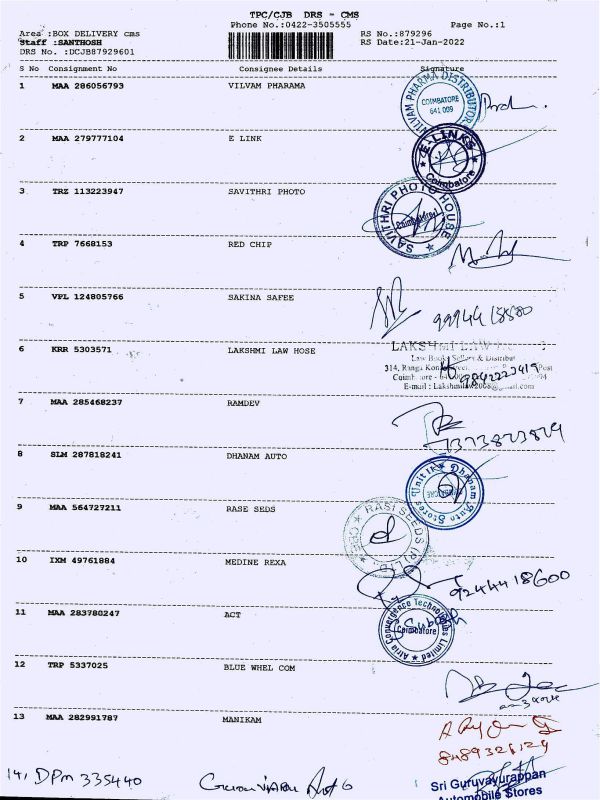 TPC/CJB DRS - CMS
Phone No.:0422-3505555 Page No.:1
Area :BOX DELIVERY cms RS No.:879296
Staff :SANTHOSH RS Date:21-Jan-2022
DRS No. :DCJB87929601
S No Consignment No Consignee Details Signature
1 MAA 286056793 VILVAM PHARAMA
VILVAM PHARMA DISTRIBUTOR
COIMBATORE
641 009
2 MAA 279777104 E LINK
E-LINKS
Coimbatore
3 TRZ 113223947 SAVITHRI PHOTO
SAVITHRI PHOTO HOUSE
Coimbatore-1
4 TRP 7668153 RED CHIP
5 VPL 124805766 SAKINA SAFEE
6 KRR 5303571 LAKSHMI LAW HOSE
LAKSHMI LAW
Law Books Sellers & Distribut
314, Ranga Post
7 MAA 285468237 RAMDEV
8 SLM 287818241 DHANAM AUTO
Dhanam Auto Stores Unit II
9 MAA 564727211 RASE SEDS
RASI SEEDS (P) LTD
CBE
10 IXM 49761884 MEDINE REXA
9244418600
11 MAA 283780247 ACT
Atria Convergence Technologies Limited
Coimbatore
12 TRP 5337025 BLUE WHEL COM
13 MAA 282991787 MANIKAM
14, DPM 335440
Sri Guruvayurappan
Automobile Stores